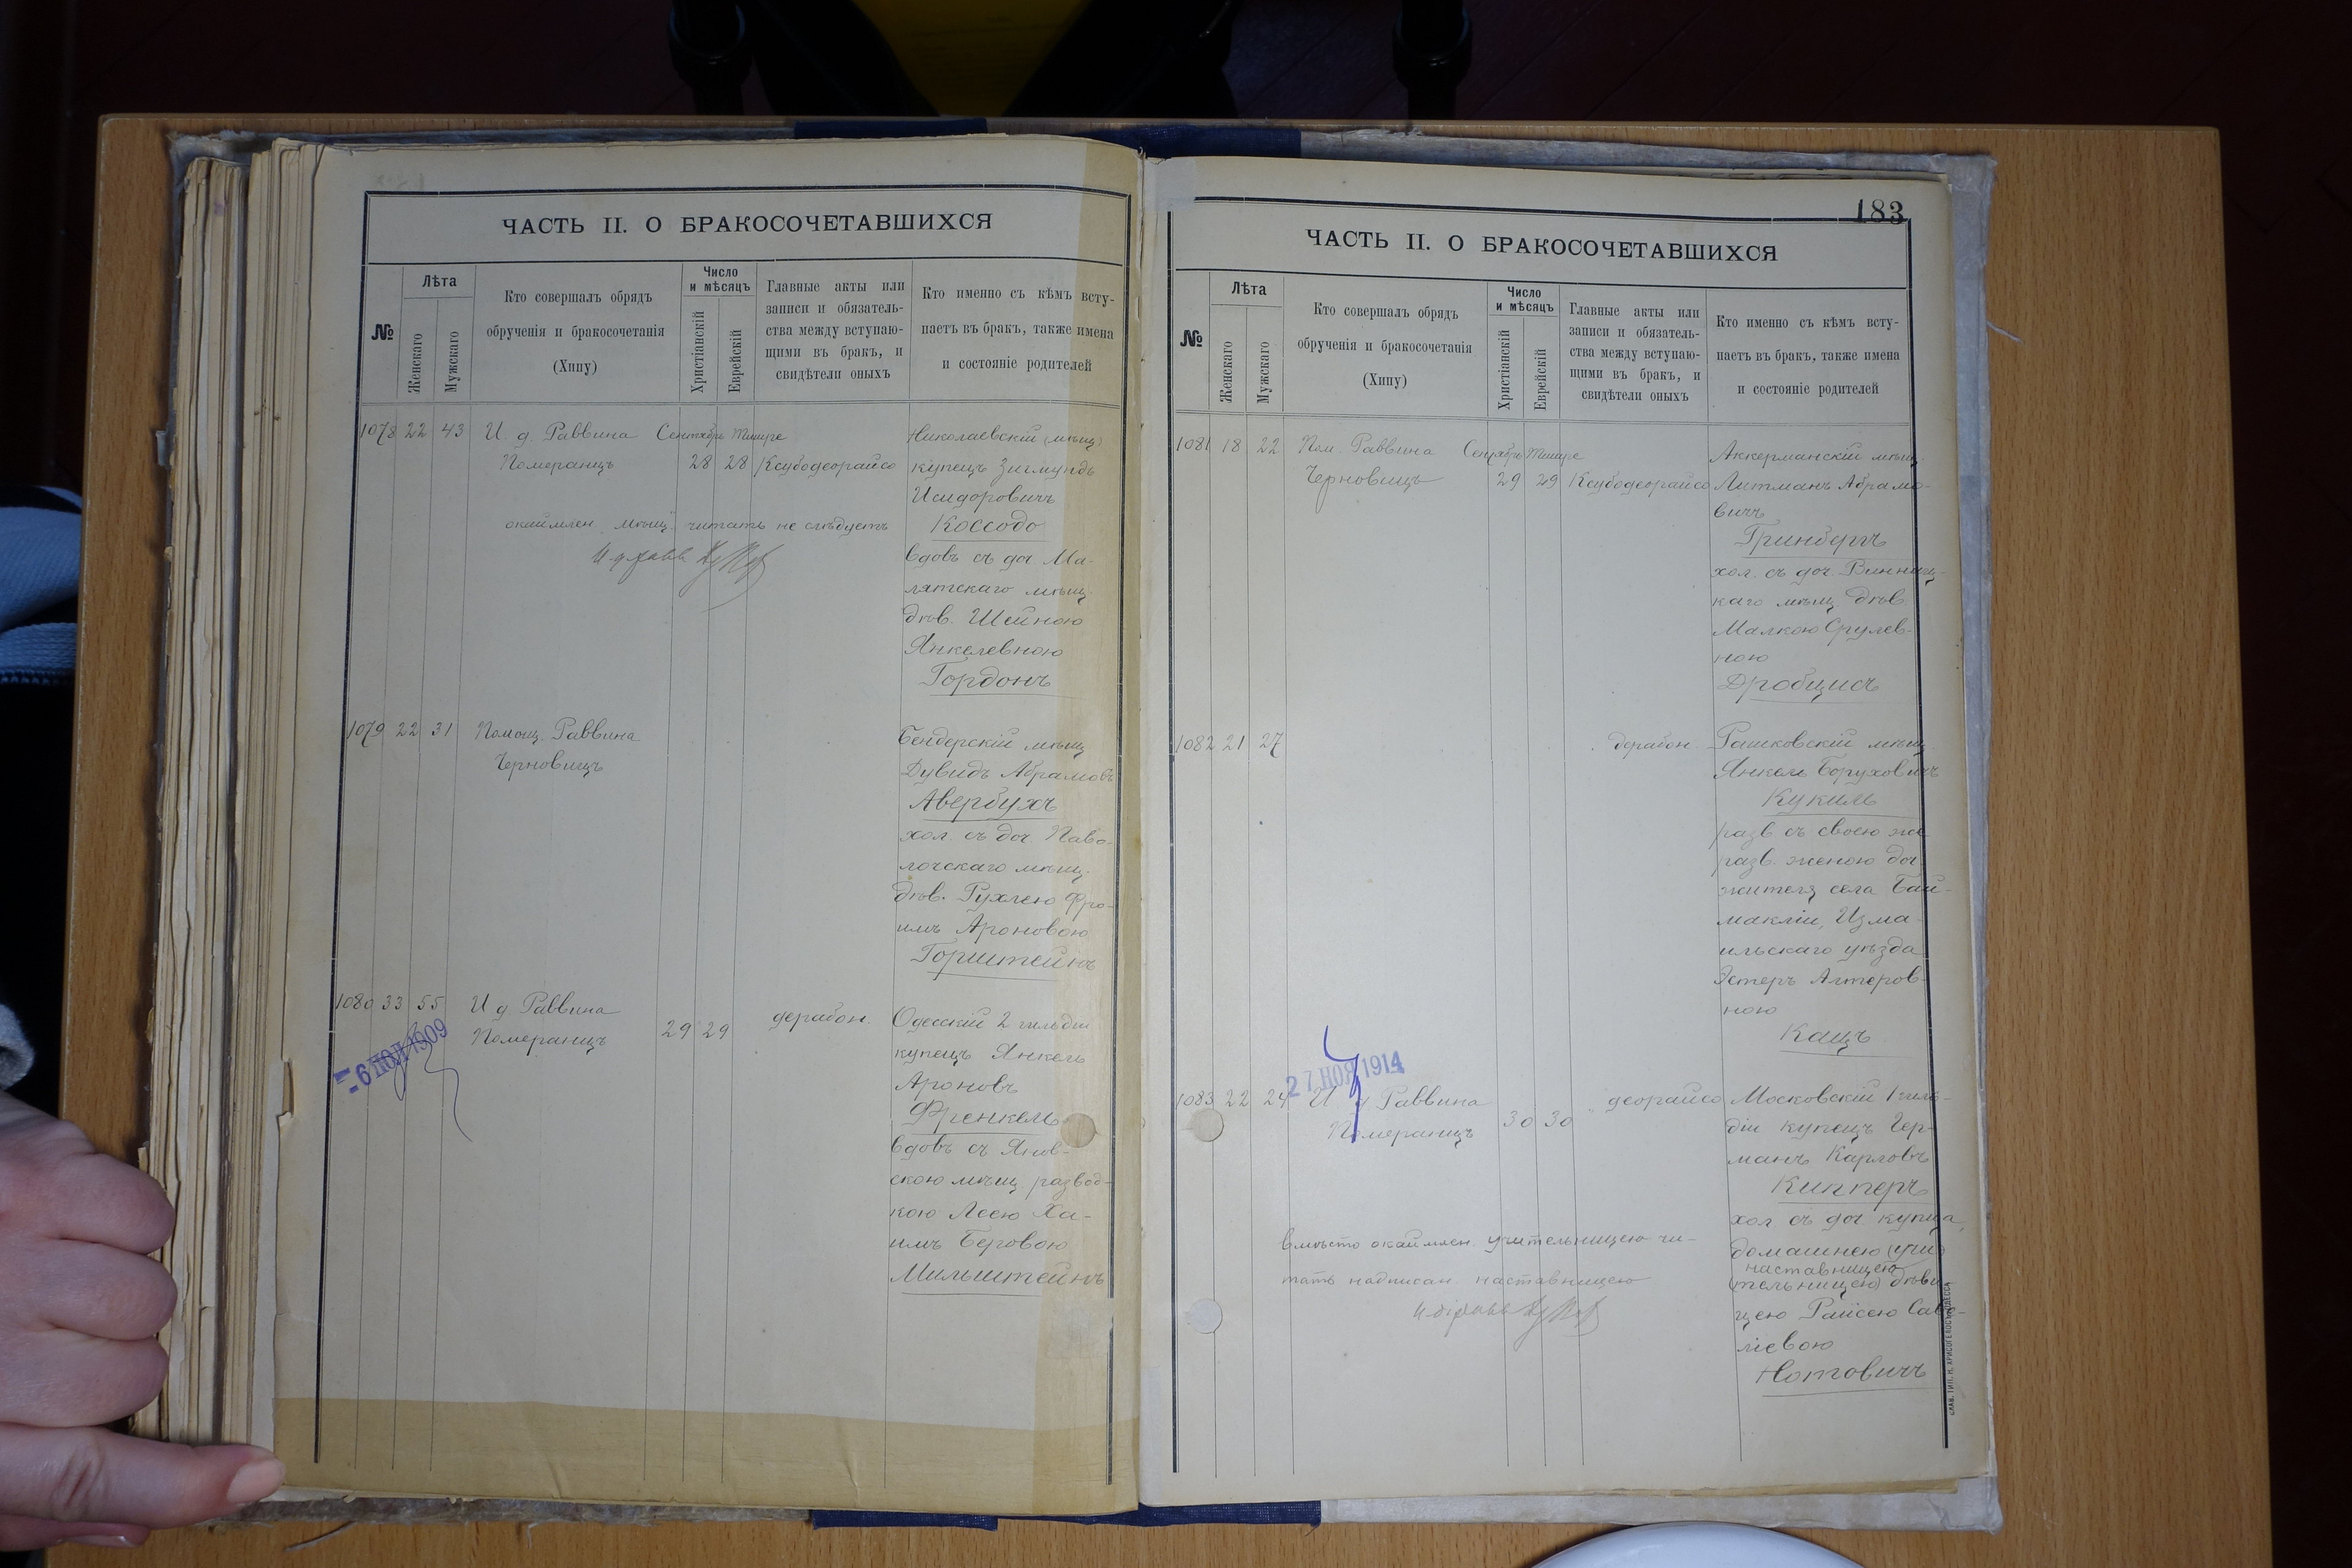 ЧАСТЬ II. О БРАКОСОЧЕТАВШИХСЯ
№
Лѣта
Женскаго
Мужскаго
Кто совершалъ обрядъ
обрученія и бракосочетанія
(Хипу)
Число
и мѣсяцъ
Христіанскій
Еврейскій
Главные акты или
записи и обязатель-
ства между вступаю-
щими въ бракъ, и
свидѣтели оныхъ
Кто именно съ кѣмъ всту-
паетъ въ бракъ, также имена
и состояніе родителей
1078 22 43
И. д. Раввина
Померанцъ
Сентябр Тишре
28 28
Ксубодеорайсо
окаймлен. „мѣщ“ читать не слѣдуетъ
И д равв
Николаевскій (мѣщ)
купецъ Зигмундъ
Исидоровичъ
Коссодо
вдовъ съ доч. Ма-
лятскаго мѣщ.
дѣв. Шейною
Янкелевною
Гордонъ
1079 22 31
Помощ. Раввина
Черновицъ
Бендерскій мѣщ
Дувидъ Абрамовъ
Авербухъ
хол. съ доч. Паво-
лочскаго мѣщ.
дѣв. Рухлею Фро-
имъ Ароновою
Горштейнъ
1080 33 55
И д Раввина
Померанцъ
29 29
дерабон.
-6 НОЯ 1909
Одесскій 2 гильдіи
купецъ Янкель
Ароновъ
Френкель
вдовъ съ Янов-
скою мѣщ. развод-
кою Леею Ха-
имъ Беровою
Мильштейнъ
183
ЧАСТЬ II. О БРАКОСОЧЕТАВШИХСЯ
№
Лѣта
Женскаго
Мужскаго
Кто совершалъ обрядъ
обрученія и бракосочетанія
(Хипу)
Число
и мѣсяцъ
Христіанскій
Еврейскій
Главные акты или
записи и обязатель-
ства между вступаю-
щими въ бракъ, и
свидѣтели оныхъ
Кто именно съ кѣмъ всту-
паетъ въ бракъ, также имена
и состояніе родителей
1081 18 22
Пом. Раввина
Черновицъ
Сентябр Тишре
29 29
Ксубодеорайсо
Аккерманскій мѣщ.
Литманъ Абрамо-
вичъ
Гринбергъ
хол. съ доч. Винниц-
каго мѣщ. дѣв.
Малкою Срулев-
ною
Дробцисъ
1082 21 27
дерабон.
Рашковскій мѣщ
Янкель Боруховичъ
Кукиль
разв съ своею же
разв. женою доч.
жителя села Бай-
макліи, Изма-
ильскаго уѣзда
Эстеръ Алтеров-
ною
Кацъ
27 НОЯ 1914
1083 22 24
И д Раввина
Померанцъ
30 30
деорайсо
вмѣсто окаймлен. учительницею чи-
тать надписан. наставницею
И д равв
Московскій 1 гиль-
діи купецъ Гер-
манъ Карловъ
Кипперъ
хол съ доч купца,
домашнею (учи
наставницею
тельницею) дѣви-
цею Райсею Саве-
ліевою
Нотовичъ
СЛАВ. ТИП. Н. ХРИСОГЕЛОСЪ ОДЕССА